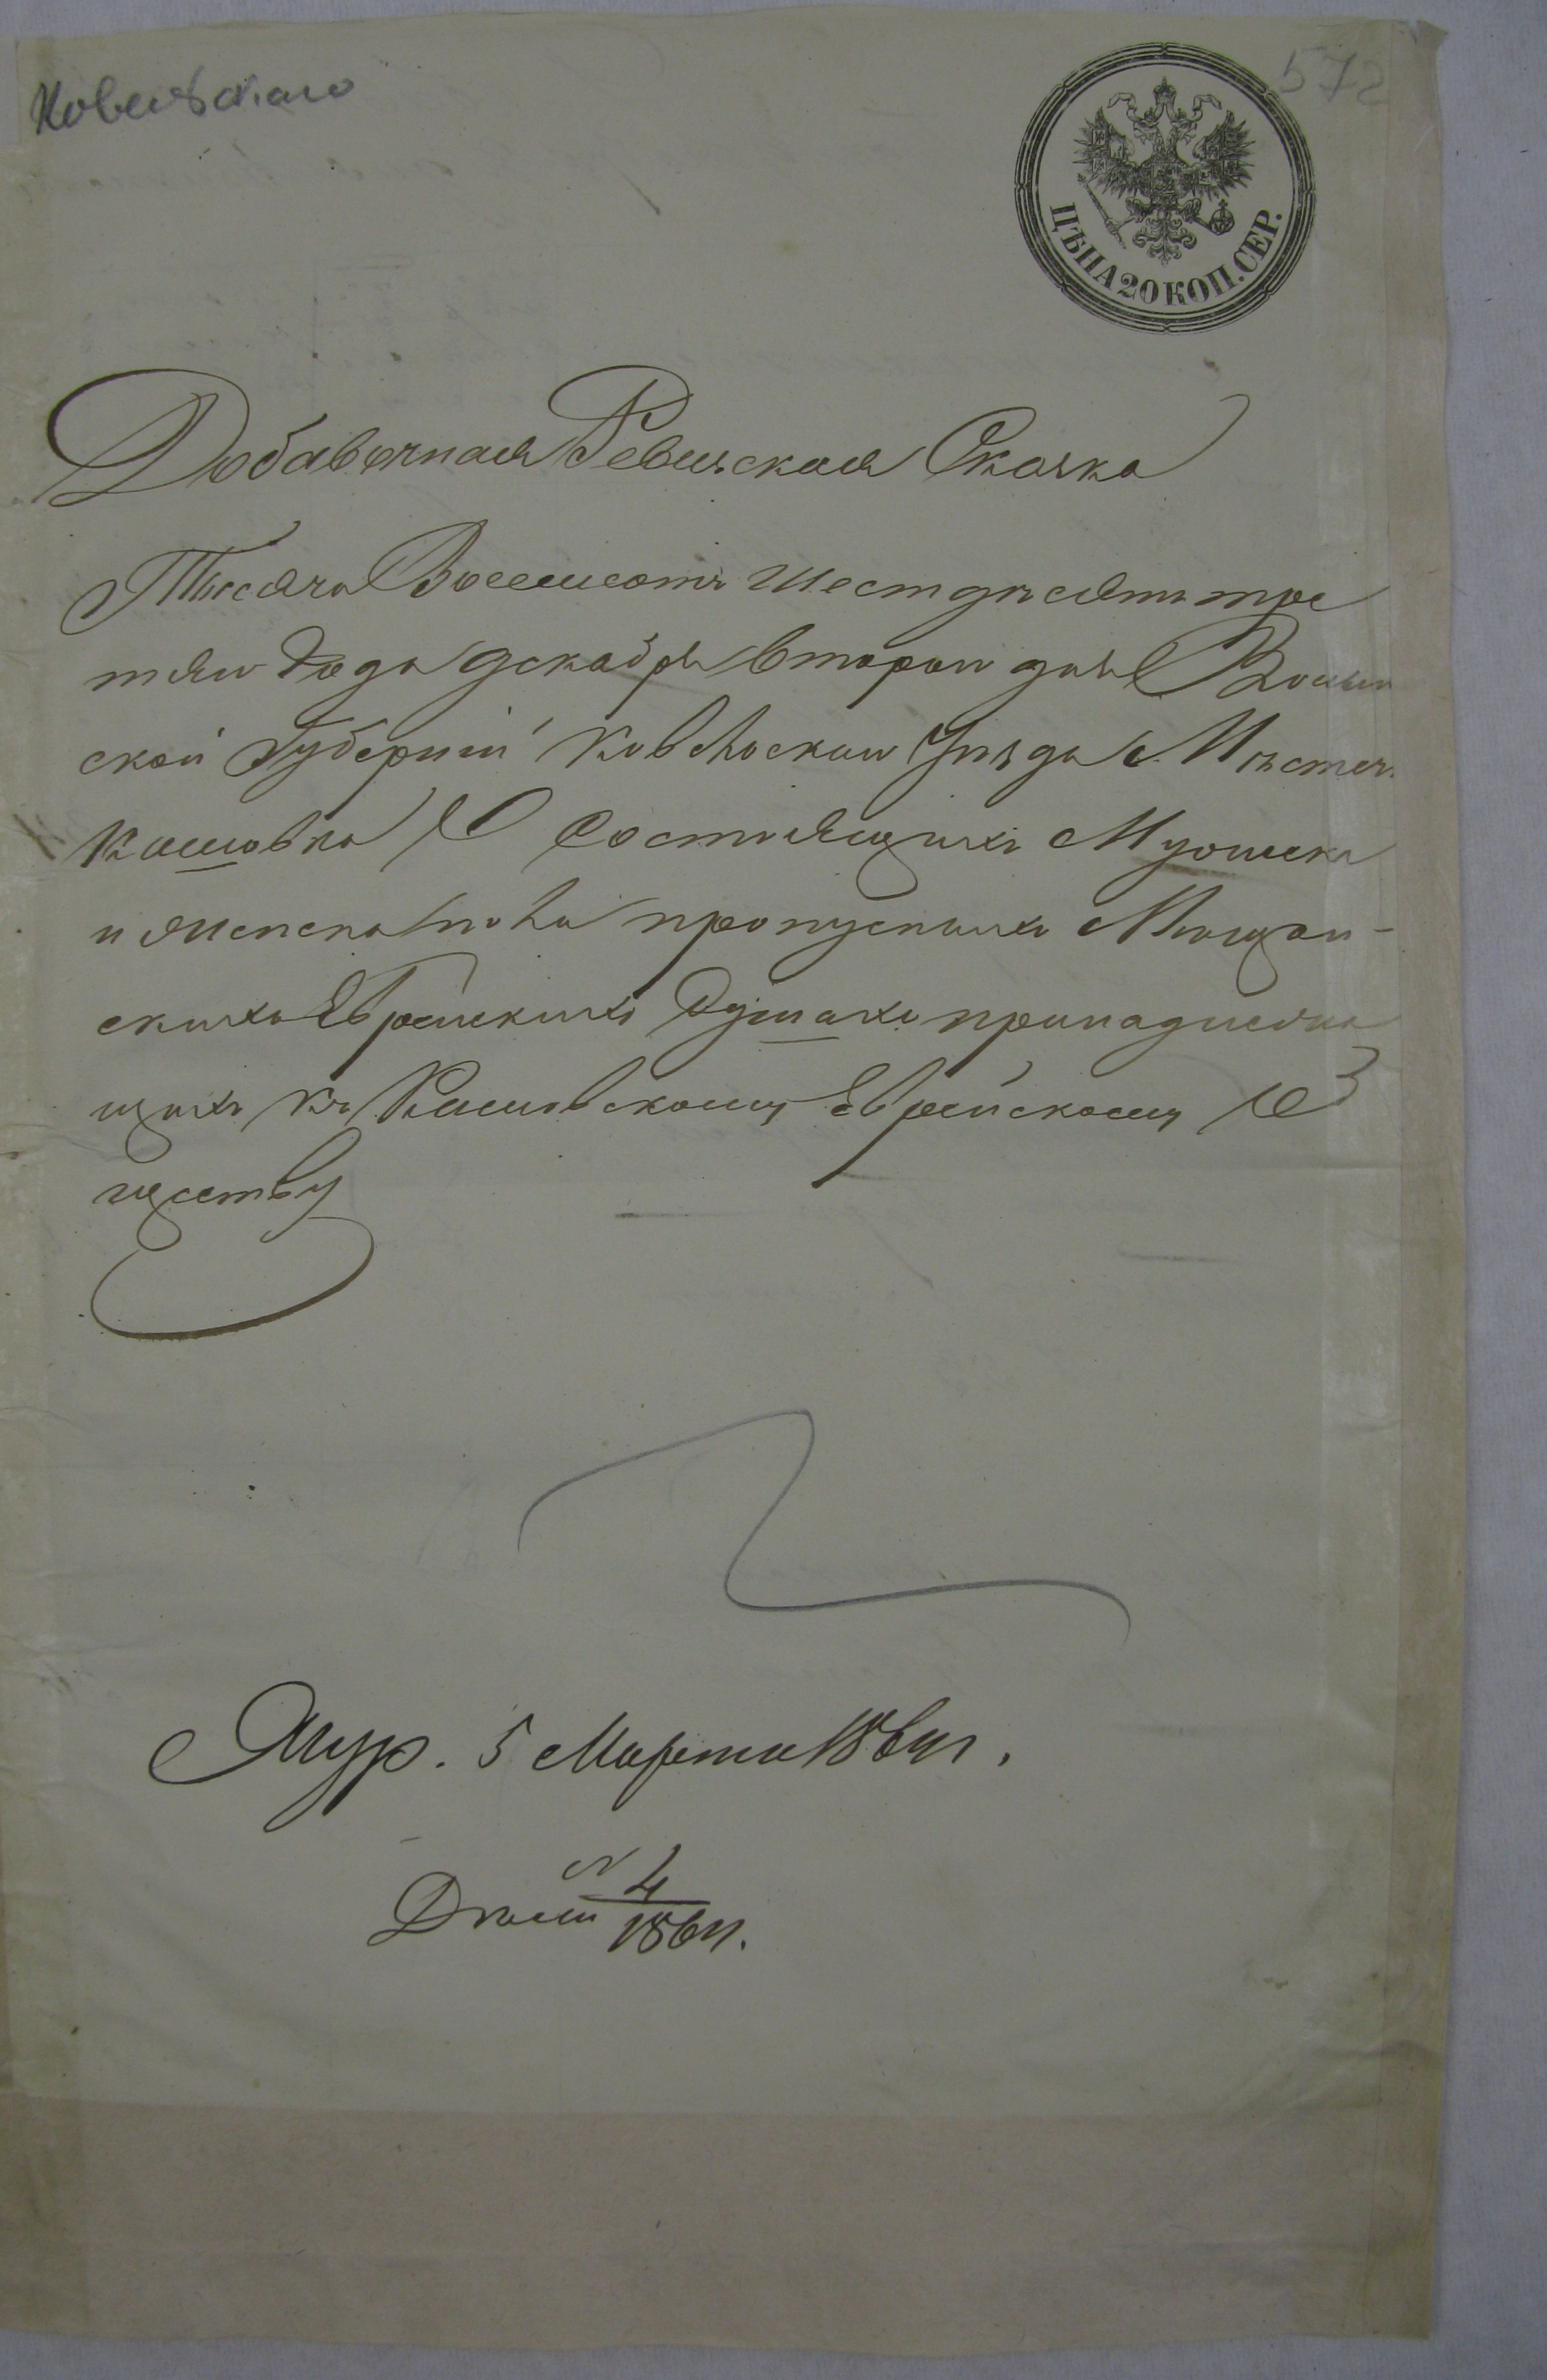 Ковельскаго
572
ЦѢНА 20 КОП. СЕР.
Добавочная Ревизская Сказка
Тысяча Восемсотъ Шестдесятъ тре
тяго Года декабря втораго дня Волын
ской Губерніи Ковельскаго Уѣзда Мѣстеч.
Кашовка О Состоящихъ Мужеска
и женска пола пропусныхъ Мѣщан-
скихъ Еврейскихъ Душахъ принадлежа
щихъ къ Кашовскому Еврейскому Об
ществу
Жур. 5 Марта 1864 г.
Дѣло № 4
1864.